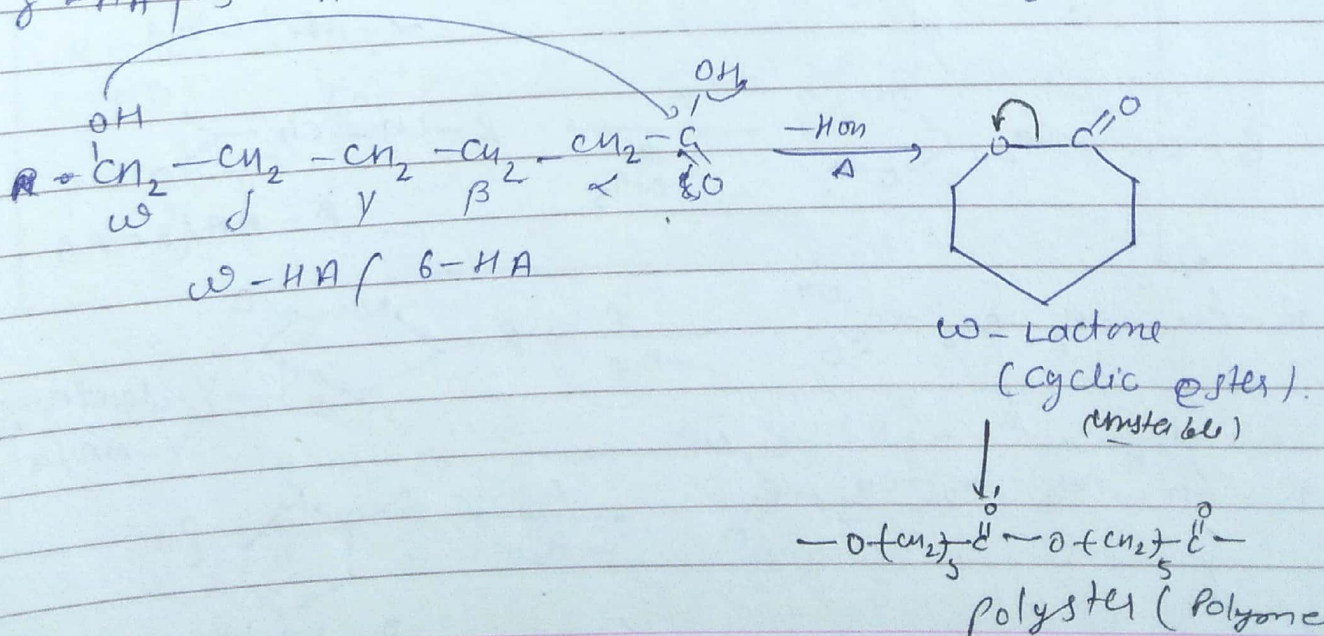 OH
OH
CH₂ – CH₂ – CH₂ – CH₂ – CH₂ – C
O
–HOH
Δ
O
O
ω δ γ β α
ω – HA / 6 – HA
ω – Lactone
(Cyclic ester).
(Unstable)
O O
— O –(CH₂)₅ – C — O –(CH₂)₅ – C –
Polyster ( Polyme